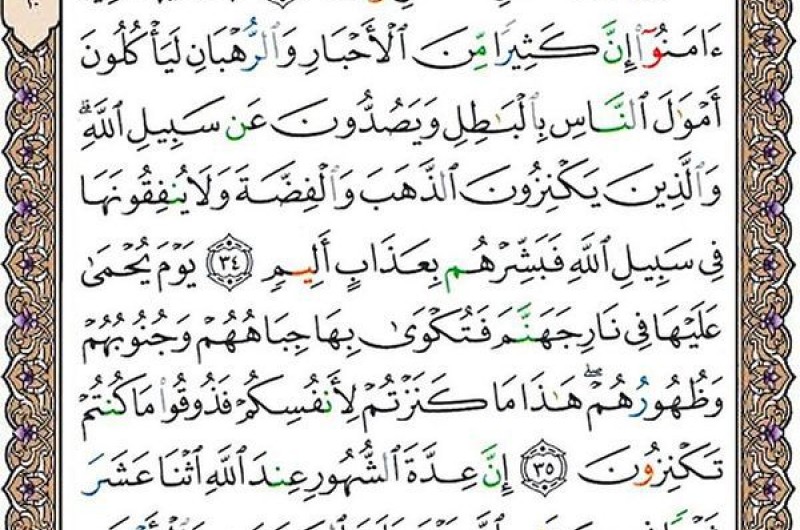 ءَامَنُوٓا۟ إِنَّ كَثِيرًا مِّنَ ٱلْأَحْبَارِ وَٱلرُّهْبَانِ لَيَأْكُلُونَ
أَمْوَٰلَ ٱلنَّاسِ بِٱلْبَٰطِلِ وَيَصُدُّونَ عَن سَبِيلِ ٱللَّهِ ۗ
وَٱلَّذِينَ يَكْنِزُونَ ٱلذَّهَبَ وَٱلْفِضَّةَ وَلَا يُنفِقُونَهَا
فِى سَبِيلِ ٱللَّهِ فَبَشِّرْهُم بِعَذَابٍ أَلِيمٍ ٣٤ يَوْمَ يُحْمَىٰ
عَلَيْهَا فِى نَارِ جَهَنَّمَ فَتُكْوَىٰ بِهَا جِبَاهُهُمْ وَجُنُوبُهُمْ
وَظُهُورُهُمْ ۖ هَٰذَا مَا كَنَزْتُمْ لِأَنفُسِكُمْ فَذُوقُوا۟ مَا كُنتُمْ
تَكْنِزُونَ ٣٥ إِنَّ عِدَّةَ ٱلشُّهُورِ عِندَ ٱللَّهِ ٱثْنَا عَشَرَ